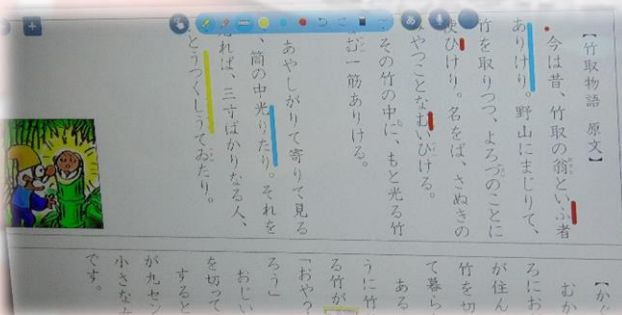 【竹取物語 原文】
今は昔、竹取の翁といふ者
ありけり。野山にまじりて、
竹を取りつつ、よろづのことに
使ひけり。名をば、さぬきの
みやつことなむいひける。
その竹の中に、もと光る竹
なむ一筋ありける。
あやしがりて寄りて見る
に、筒の中光りたり。それを
見れば、三寸ばかりなる人、
いとうつくしうてゐたり。
【かぐ
むか
ろにお
が住ん
竹を切
て暮ら
ある
うに竹
る竹が
「おや?
ろう」
おじい
を切って
すると
が九セン
小さな女
です。
あ